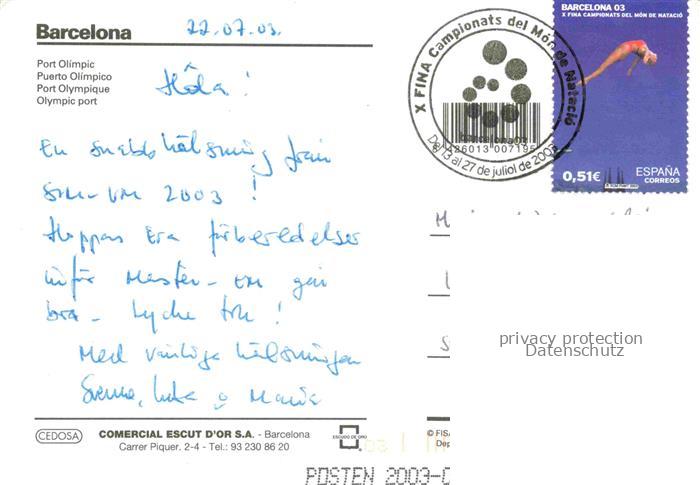 Barcelona
22.07.03.
Port Olímpic
Puerto Olímpico
Port Olympique
Olympic port
Hóla!
En snabb hälsning från
SIM-VM 2003!
Hoppas Era förberedelser
inför Master-EM går
bra - Lycka till!
Med vänliga hälsningar
& Maria
X FINA Campionats del Món de Natació
De 13 al 27 de juliol de 2003
BARCELONA 03
X FINA CAMPIONATS DEL MÓN DE NATACIÓ
0,51€
ESPAÑA
CORREOS
privacy protection
Datenschutz
CEDOSA
COMERCIAL ESCUT D'OR S.A. - Barcelona
Carrer Piquer. 2-4 - Tel.: 93 230 86 20
ESCUDO DE ORO
© FIS
Dep
POSTEN 2003-0